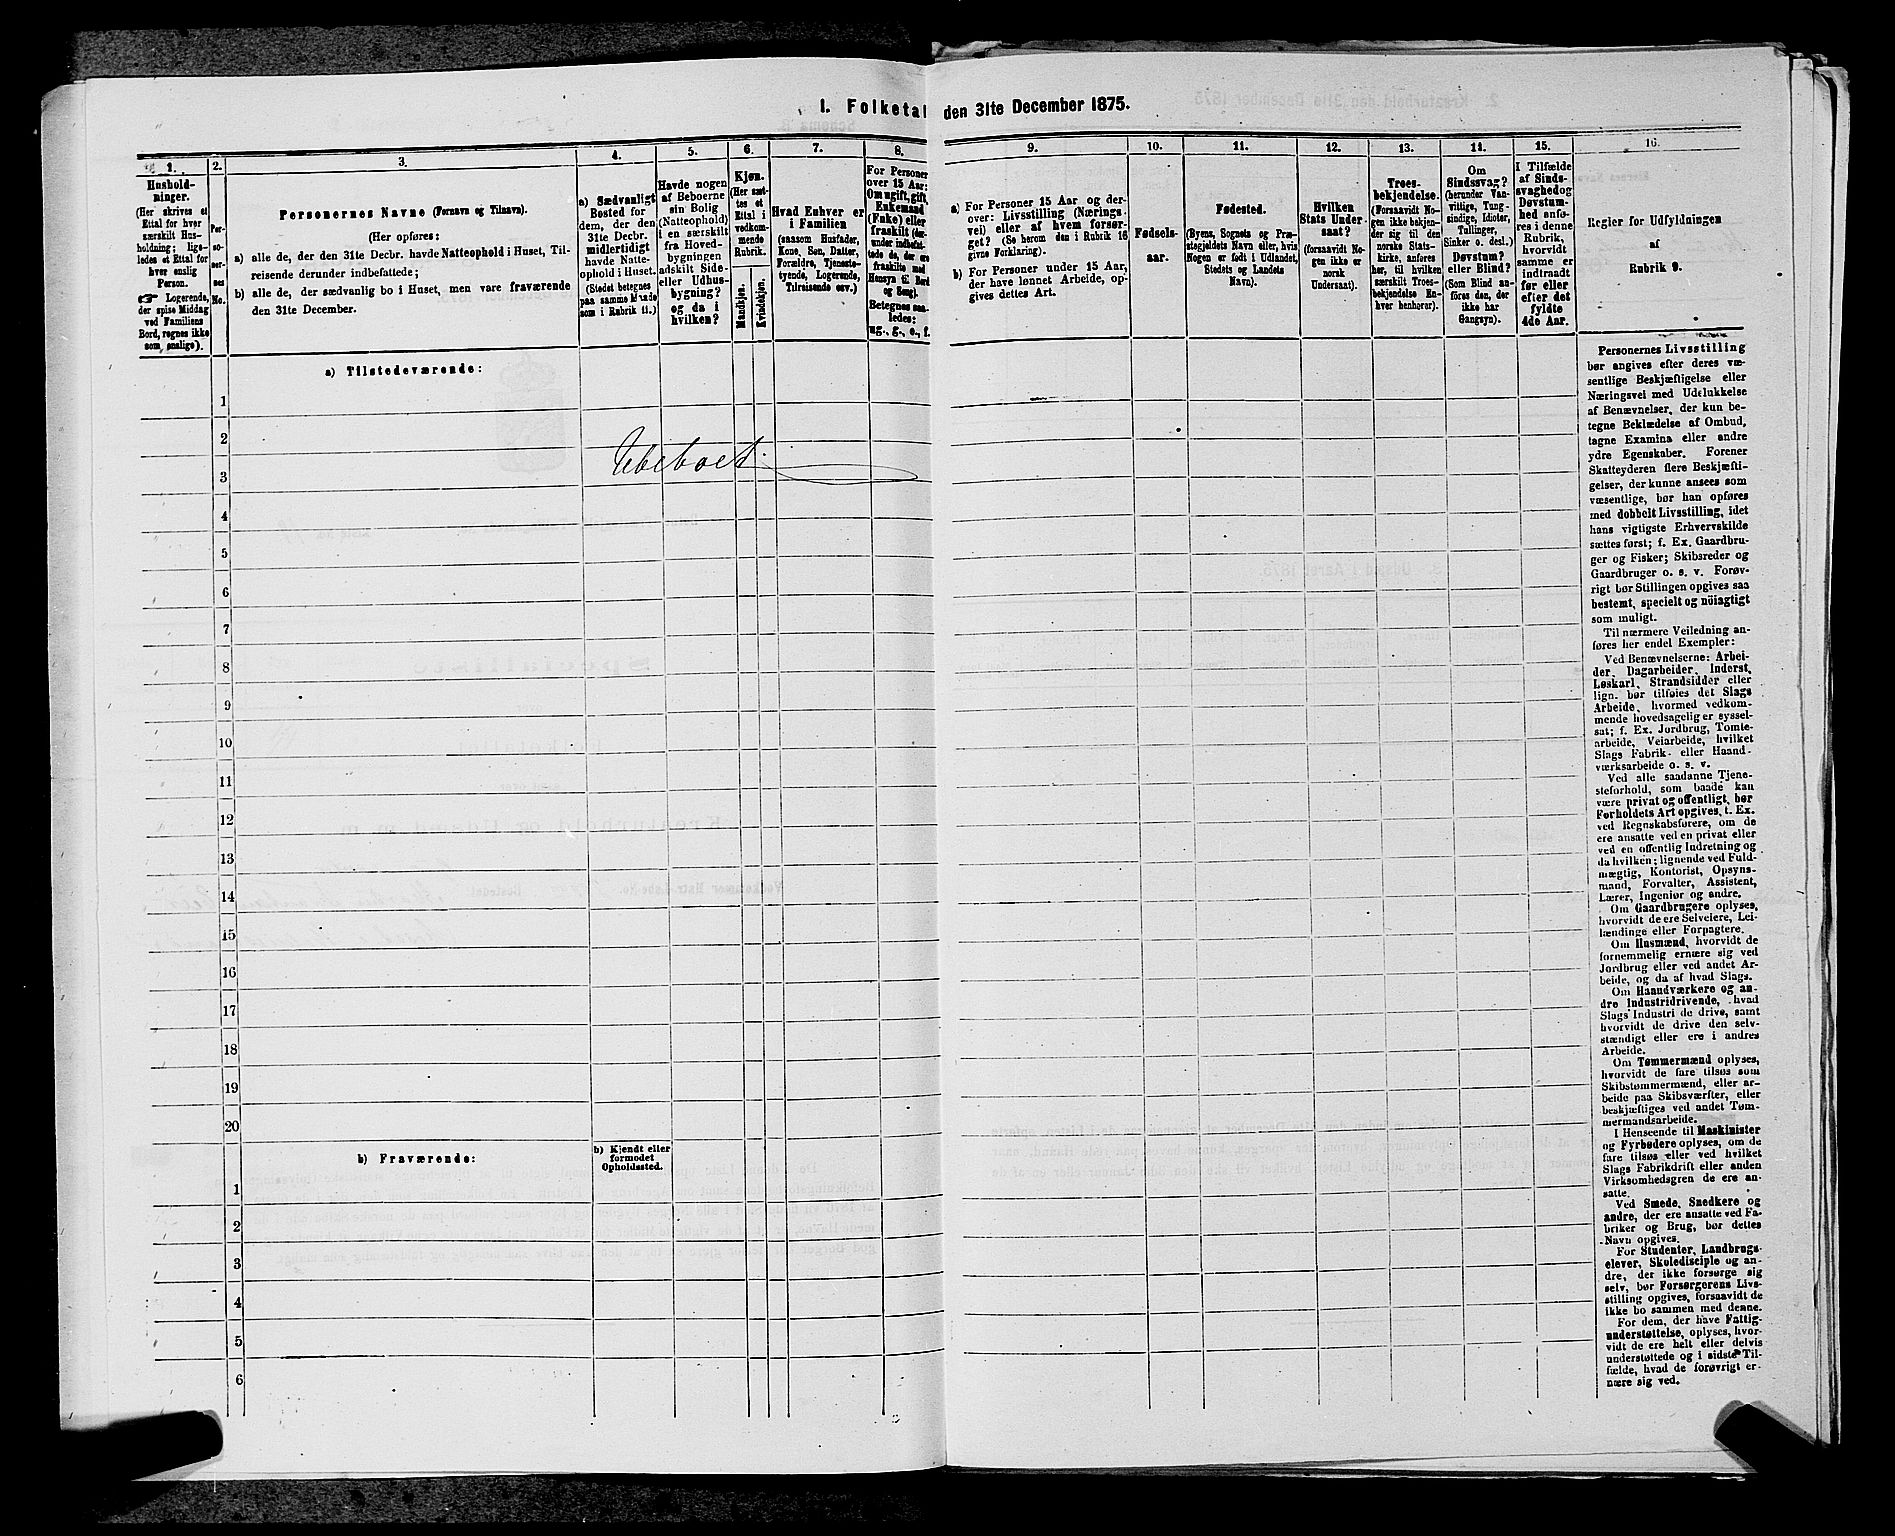 1. Folketal den 31te December 1875.
1.
Hushold-
ninger.
(Her skrives et
Ettal for hver
særskilt Hus-
holdning; lige-
ledes et Ettal for
hver enslig
Person.
Logerende,
der spise Middag
ved Familiens
Bord, regnes ikke
som enslige).
2.
Per-
so-
ner-
nes
No.
3.
Personernes Navne (Fornavn og Tilnavn).
(Her opføres:
a) alle de, der den 31te Decbr. havde Natteophold i Huset, Til-
reisende derunder indbefattede;
b) alle de, der sædvanlig bo i Huset, men vare fraværende
den 31te December.
4.
a) Sædvanligt
Bosted for
dem, der den
31te Decbr.
midlertidigt
havde Natte-
ophold i Huset.
(Stedet betegnes
paa samme Maade
som i Rubrik 11.)
5.
Havde nogen
af Beboerne
sin Bolig
(Natteophold)
i en særskilt
fra Hoved-
bygningen
adskilt Side-
eller Udhus-
bygning?
og da i
hvilken?
6.
Kjøn.
(Her sæt-
tes et
Ettal i
vedkom-
mende
Rubrik.
Mandkjøn.
Kvindekjøn.
7.
Hvad Enhver er
i Familien
(saasom Husfader,
Kone, Søn, Datter,
Forældre, Tjeneste-
tyende, Logerende,
Tilreisende osv.)
8.
For Personer
over 15 Aar:
Om ugift, gift,
Enkemand
(Enke) eller
fraskilt (der-
under indbefat-
tede de, der ere
fraskilte med
Hensyn til Bord
og Seng).
Betegnes saa-
ledes:
ug., g., e., f.
9.
a) For Personer 15 Aar og der-
over: Livsstilling (Nærings-
vei) eller af hvem forsør-
get? (Se herom den i Rubrik 16
givne Forklaring).
b) For Personer under 15 Aar,
der have lønnet Arbeide, op-
gives dettes Art.
10.
Fødsels-
aar.
11.
Fødested.
(Byens, Sognets og Præ-
stegjeldets Navn eller, hvis
Nogen er født i Udlandet,
Stedets og Landets
Navn).
12.
Hvilken
Stats Under-
saat?
(forsaavidt No-
gen ikke er
norsk
Undersaat).
13.
Troes-
bekjendelse.
(Forsaavidt No-
gen ikke bekjen-
der sig til den
norske Stats-
kirke, anføres
her, til hvilken
særskilt Troes-
bekjendelse En-
hver henhører).
14.
Om
Sindssvag?
(herunder Van-
vittige, Tung-
sindige, Idioter,
Tullinger,
Sinker o. desl.)
Døvstum?
eller Blind?
(Som Blind an-
føres den, der
ikke har
Gangsyn).
15.
I Tilfælde
af Sinds-
svaghed og
Døvstum-
hed anfø-
res i denne
Rubrik,
hvorvidt
samme er
indtraadt
før eller
efter det
fyldte
4de Aar.
16.
Regler for Udfyldningen
af
Rubrik 9.
a) Tilstedeværende:
1
2
Ubeboet.
3
4
5
6
7
8
9
10
11
12
13
14
15
16
17
18
19
20
b) Fraværende:
b) Kjendt eller
formodet
Opholdssted.
1
2
3
4
5
6
Personernes Livsstilling
bør angives efter deres væ-
sentlige Beskjæftigelse eller
Næringsvei med Udelukkelse
af Benævnelser, der kun be-
tegne Beklædelse af Ombud,
tagne Examina eller andre
ydre Egenskaber. Forener
Skatteyderen flere Beskjæfti-
gelser, der kunne ansees som
væsentlige, bør han opføres
med dobbelt Livsstilling, idet
hans vigtigste Erhvervskilde
sættes først; f. Ex. Gaardbru-
ger og Fisker; Skibsreder og
Gaardbruger o. s. v. Forøv-
rigt bør Stillingen opgives saa
bestemt, specielt og nöiagtigt
som muligt.
Til nærmere Veiledning an-
føres her endel Exempler:
Ved Benævnelserne: Arbei-
der, Dagarbeider, Inderst,
Løskarl, Strandsidder eller
lign. bør tilføies det Slags
Arbeide, hvormed vedkom-
mende hovedsagelig er syssel-
sat; f. Ex. Jordbrug, Tomte-
arbeide, Veiarbeide, hvilket
Slags Fabrik- eller Haand-
værksarbeide o. s. v.
Ved alle saadanne Tjene-
steforhold, som baade kan
være privat og offentligt, bør
Forholdets Art opgives, t. Ex.
ved Regnskabsførere, om de
ere ansatte ved en privat eller
ved en offentlig Indretning og
da hvilken; lignende ved Fuld-
mægtig, Kontorist, Opsyns-
mand, Forvalter, Assistent,
Lærer, Ingeniør og andre.
Om Gaardbrugere oplyses,
hvorvidt de ere Selveiere, Lei-
lændinge eller Forpagtere.
Om Husmænd, hvorvidt de
fornemmelig ernære sig ved
Jordbrug eller ved andet Ar-
beide, og da af hvad Slags.
Om Haandværkere og an-
dre Industridrivende, hvad
Slags Industri de drive, samt
hvorvidt de drive den selv-
stændigt eller ere i andres
Arbeide.
Om Tømmermænd oplyses,
hvorvidt de fare tilsøs som
Skibstømmermænd, eller ar-
beide paa Skibsværfter, eller
beskjæftiges ved andet Tøm-
mermandsarbeide.
I Henseende til Maskinister
og Fyrbødere oplyses, om de
fare tilsøs eller ved hvilket
Slags Fabrikdrift eller anden
Virksomhedsgren de ere an-
satte.
Ved Smede, Snedkere og
andre, der ere ansatte ved Fa-
briker og Brug, bør dettes
Navn opgives.
For Studenter, Landbrugs-
elever, Skoledisciple og an-
dre, der ikke forsørge sig
selv, bør Forsørgerens Livs-
stilling opgives, forsaavidt de
ikke bo sammen med denne.
For dem, der have Fattig-
understøttelse, oplyses, hvor-
vidt de ere helt eller delvis
understøttede og i sidste Til-
fælde, hvad de forøvrigt er-
nære sig ved.